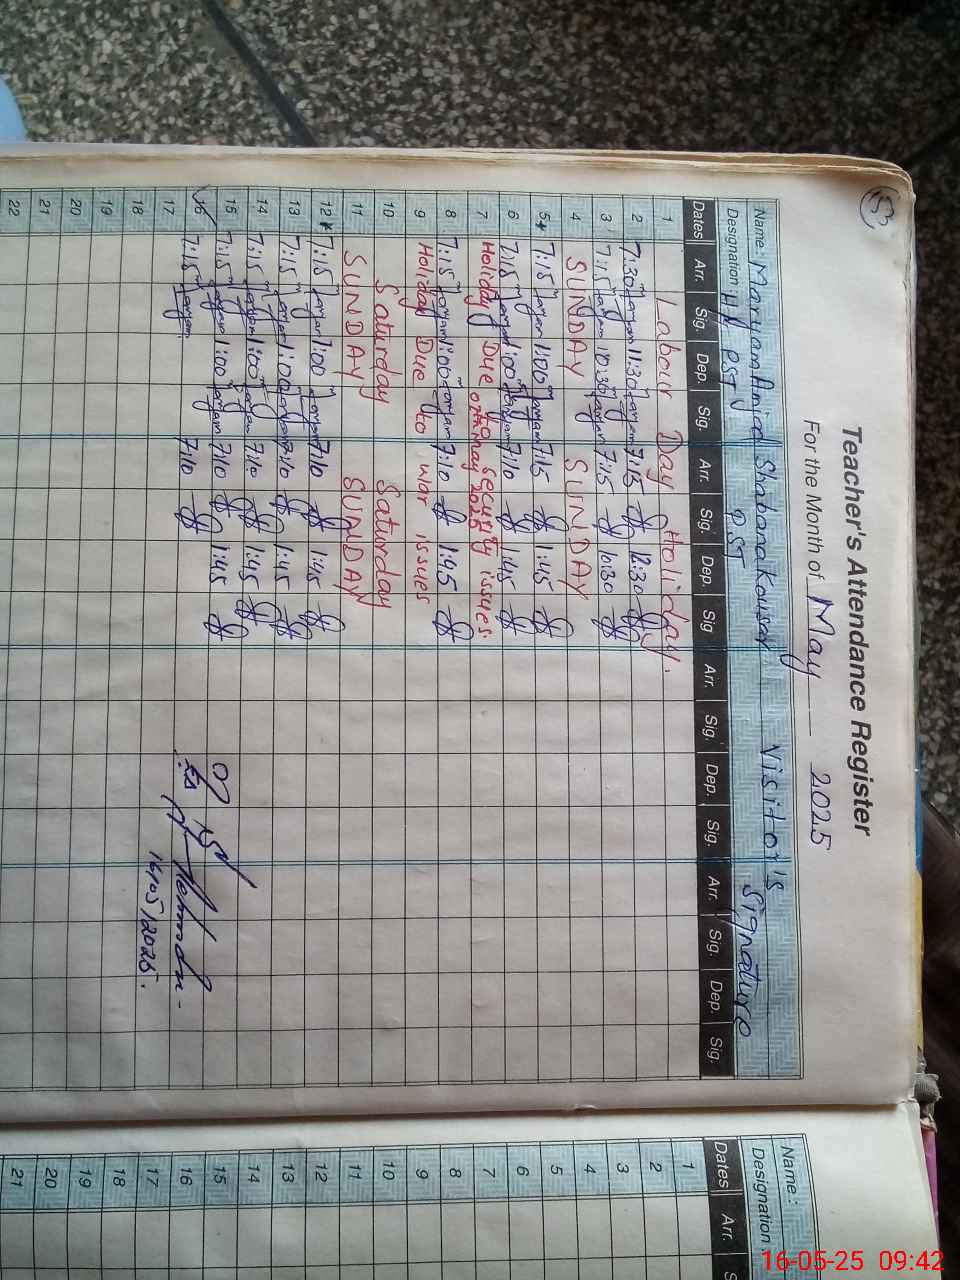 53
Teacher's Attendance Register
For the Month of May 2025
Name: Maryam Amjad Shabana Kousar Visitor's
Designation: H/T PST PST Signature
Dates Arr. Sig. Dep. Sig. Arr. Sig. Dep. Sig Arr. Sig. Dep. Sig. Arr. Sig. Dep. Sig.
1 Labour Day Holiday.
2 7:30 Maryam 11:30 Maryam 7:15 12:30
3 7:15 Maryam 10:30 Maryam 7:15 10:30
4 SUNDAY SUNDAY
5 7:15 Maryam 1:00 Maryam 7:15 1:45
6 7:15 Maryam 1:00 Maryam 7:10 1:45
7 Holiday Due to security issues.
8 7:15 Maryam 1:00 Maryam 7:10 1:45
9 Holiday Due to war issues
10 Saturday Saturday
11 SUNDAY SUNDAY
12 7:15 Maryam 1:00 Maryam 7:10 1:45
13 7:15 Maryam 1:00 Maryam 7:10 1:45
14 7:15 Maryam 1:00 Maryam 7:10 1:45
15 7:15 Maryam 1:00 Maryam 7:10 1:45
16 7:15 Maryam 7:10
17 16/05/2025.
18
19
20
21
22
Name:
Designation
Dates Arr.
1
2
3
4
5
6
7
8
9
10
11
12
13
14
15
16
17
18
19
20
21
16-05-25 09:42